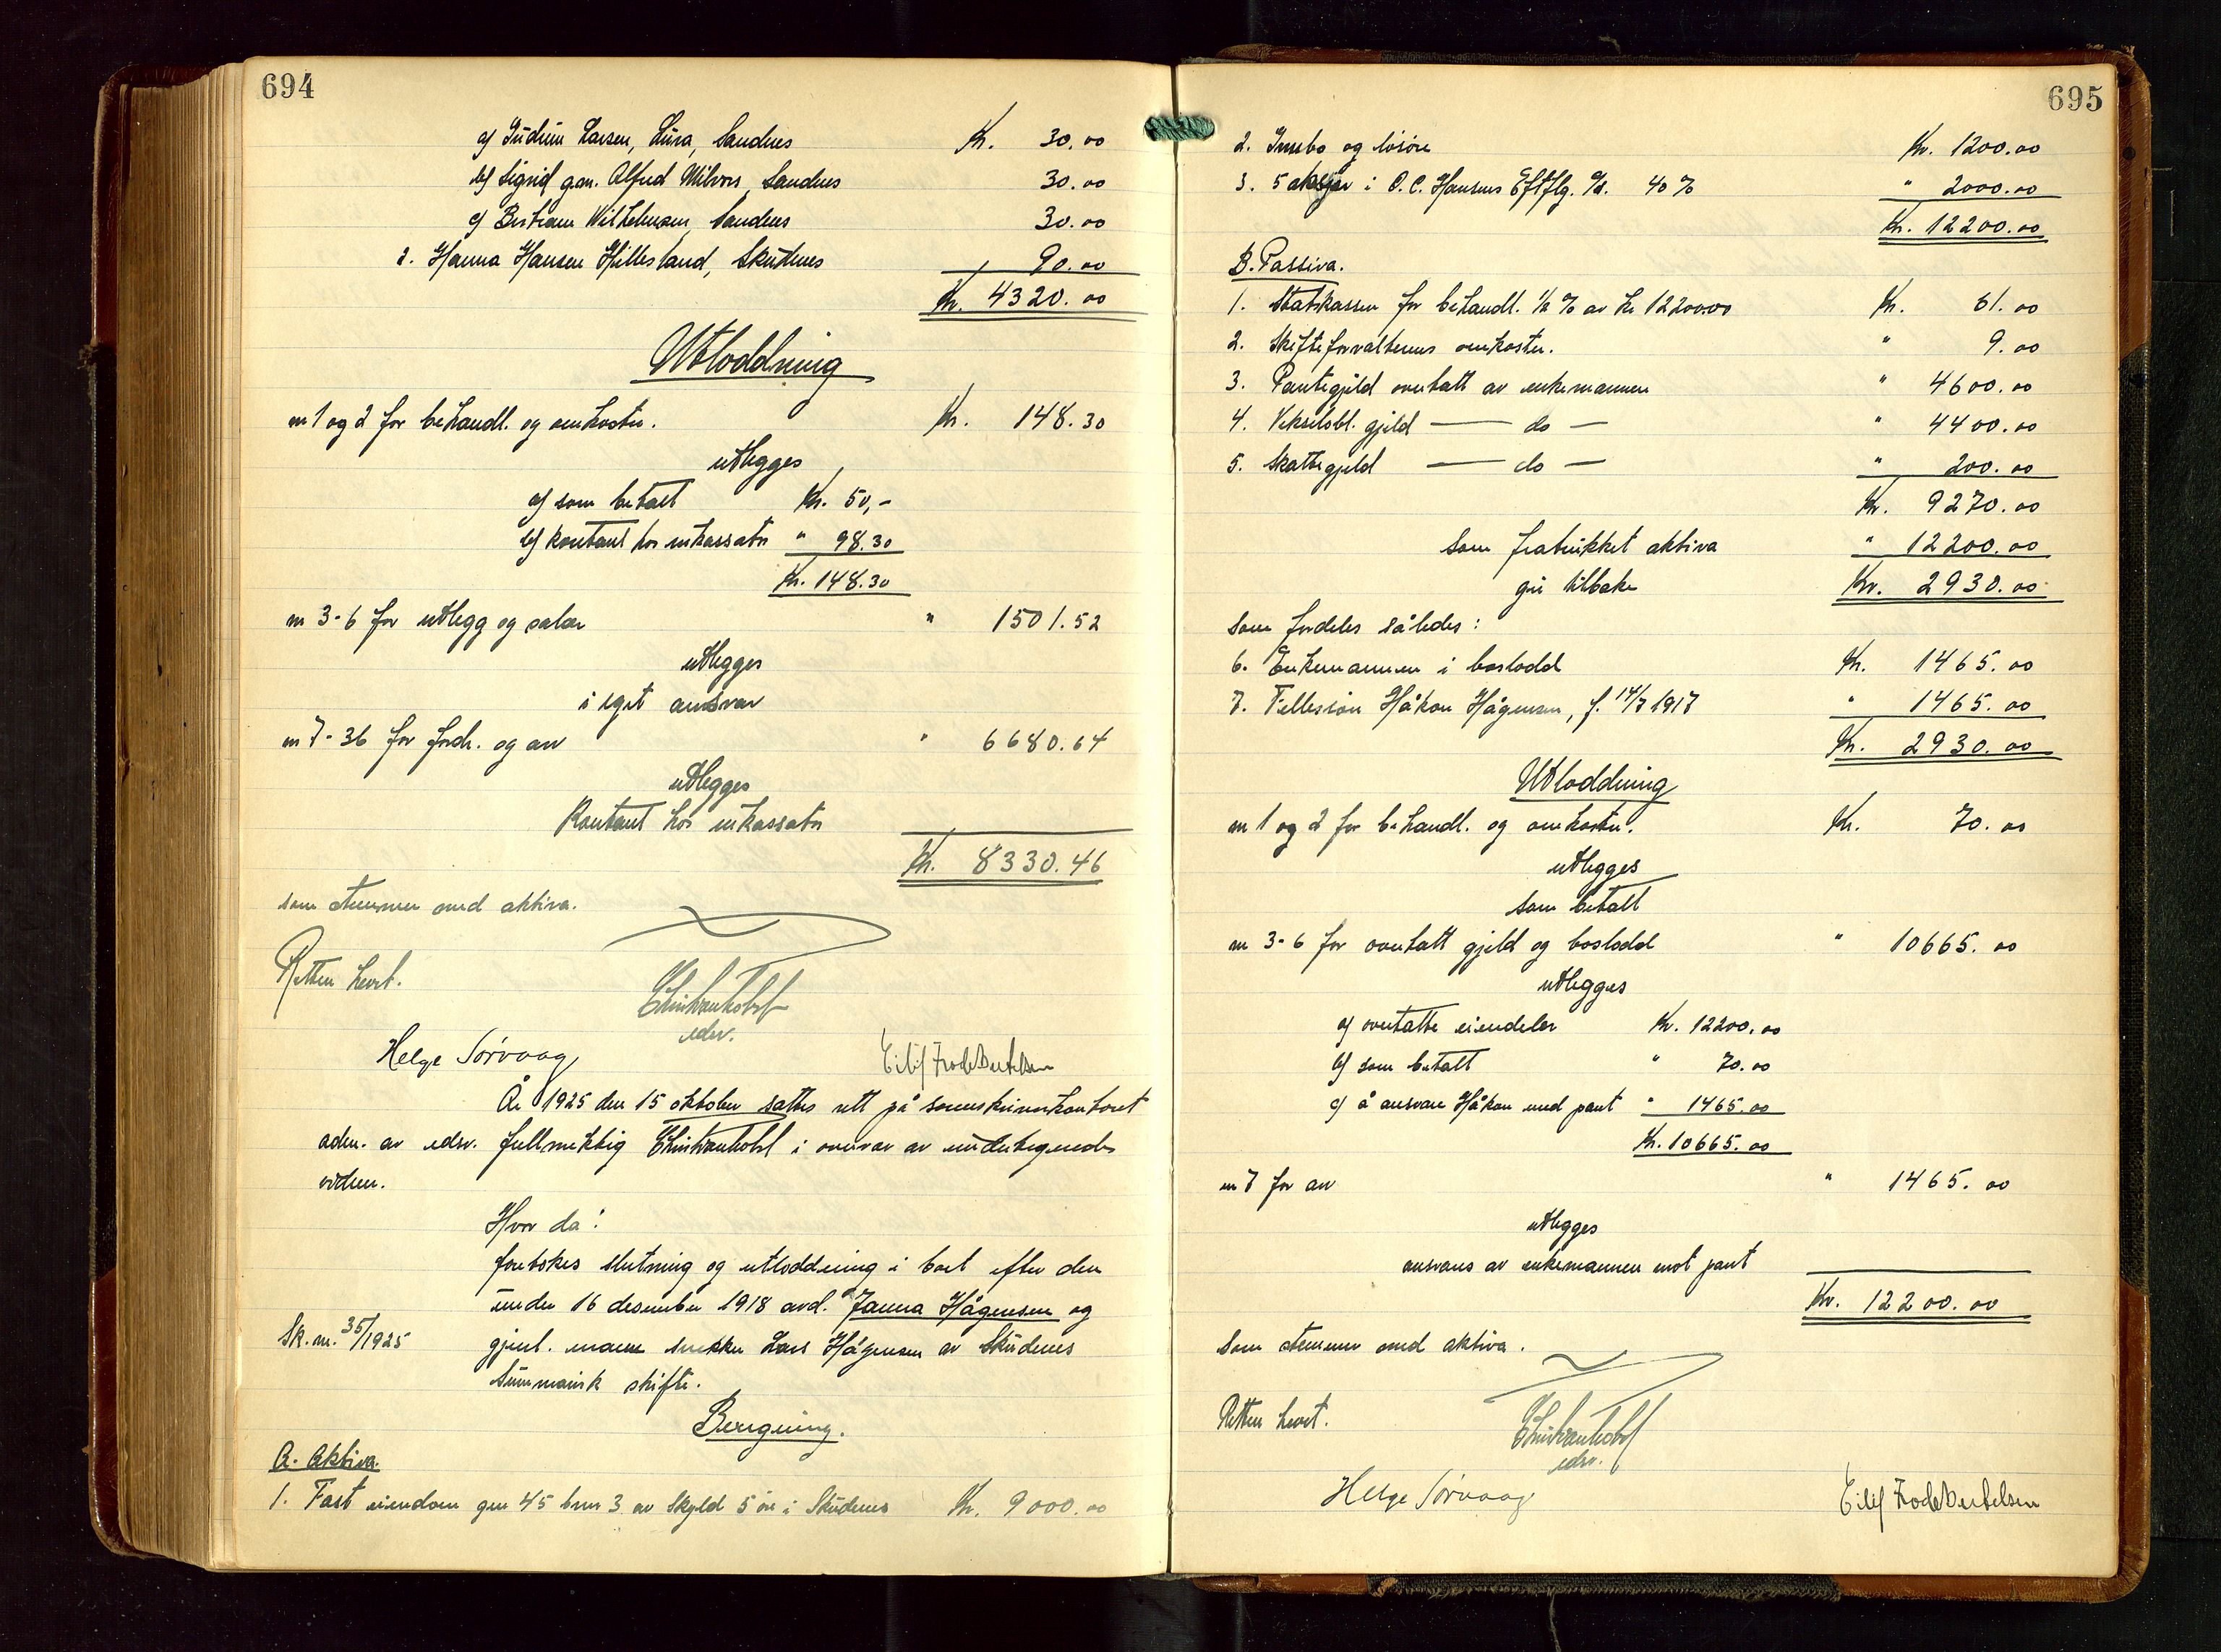 694
a) Gudrun Larsen, Lura, Sandnes Kr. 30.00
b) Sigrid gm. Alfred Milvors, Sandnes 30.00
c) Bertram Vilhelmsen, Sandnes 30.00
2. Hanna Hansen Hillesland, Skudenes 90.00
Kr. 4320.00
Utloddning
nr 1 og 2 for behandl. og omkostn. Kr. 148.30
utlegges
a) som betalt Kr. 50,-
b) kontant hos inkassator " 98.30
Kr. 148.30
nr 3-6 for utlegg og salær " 1501.52
utlegges
i eget ansvar
nr 7-36 for fordr. og arv " 6680.64
utlegges
Kontant hos inkassator
Kr. 8330.46
som stemmer med aktiva.
Retten hevet.
edsv.
Helge Sørvaag Eilif Frode Bertelsen
År 1925 den 15 oktober sattes rett på sorenskriverkontoret
adm. av edsv. fullmektig i overvær av undertegnede
vidner.
Hvor da:
foretokes slutning og utloddning i boet efter den
under 16 desember 1918 avd. Janna Hågensen og
Sk. nr. 35/1925 gjenl. mann snekker Lars Hågensen av Skudenes
Summarisk skifte.
Beregning.
A. Aktiva.
1. Fast eiendom gnr 45 bnr 3 av Skyld 5 øre i Skudenes Kr. 9000.00
695
2. Innbo og løsøre Kr. 1200.00
3. 5 aksjer i O. C. Hansens Eftflg. A/S. 40 % " 2000.00
Kr. 12200.00
B. Passiva.
1. Statskassen for behandl. ½ % av kr 12200.00 Kr. 61.00
2. Skifteforvalterens omkostn. " 9.00
3. Pantegjeld overtatt av enkemannen " 4600.00
4. Vekselobl. gjeld — do — " 4400.00
5. Skattegjeld — do — " 200.00
Kr. 9270.00
som fratrukket aktiva " 12200.00
gir tilbake Kr. 2930.00
som fordeles således:
6. Enkemannen i boslodd Kr. 1465.00
7. Fellessøn Håkon Hågensen, f. 14/7 1917 " 1465.00
Kr. 2930.00
Utloddning
nr 1 og 2 for behandl. og omkostn. Kr. 70.00
utlegges
som betalt
nr 3-6 for overtatt gjeld og boslodd " 10665.00
utlegges
a) overtatte eiendeler Kr. 12200.00
b) som betalt " 70.00
c) å ansvare Håkon med pant " 1465.00
Kr. 10665.00
nr 7 for arv " 1465.00
utlegges
ansvares av enkemannen mot pant
Kr. 12200.00
som stemmer med aktiva.
Retten hevet.
edsv.
Helge Sørvaag Eilif Frode Bertelsen